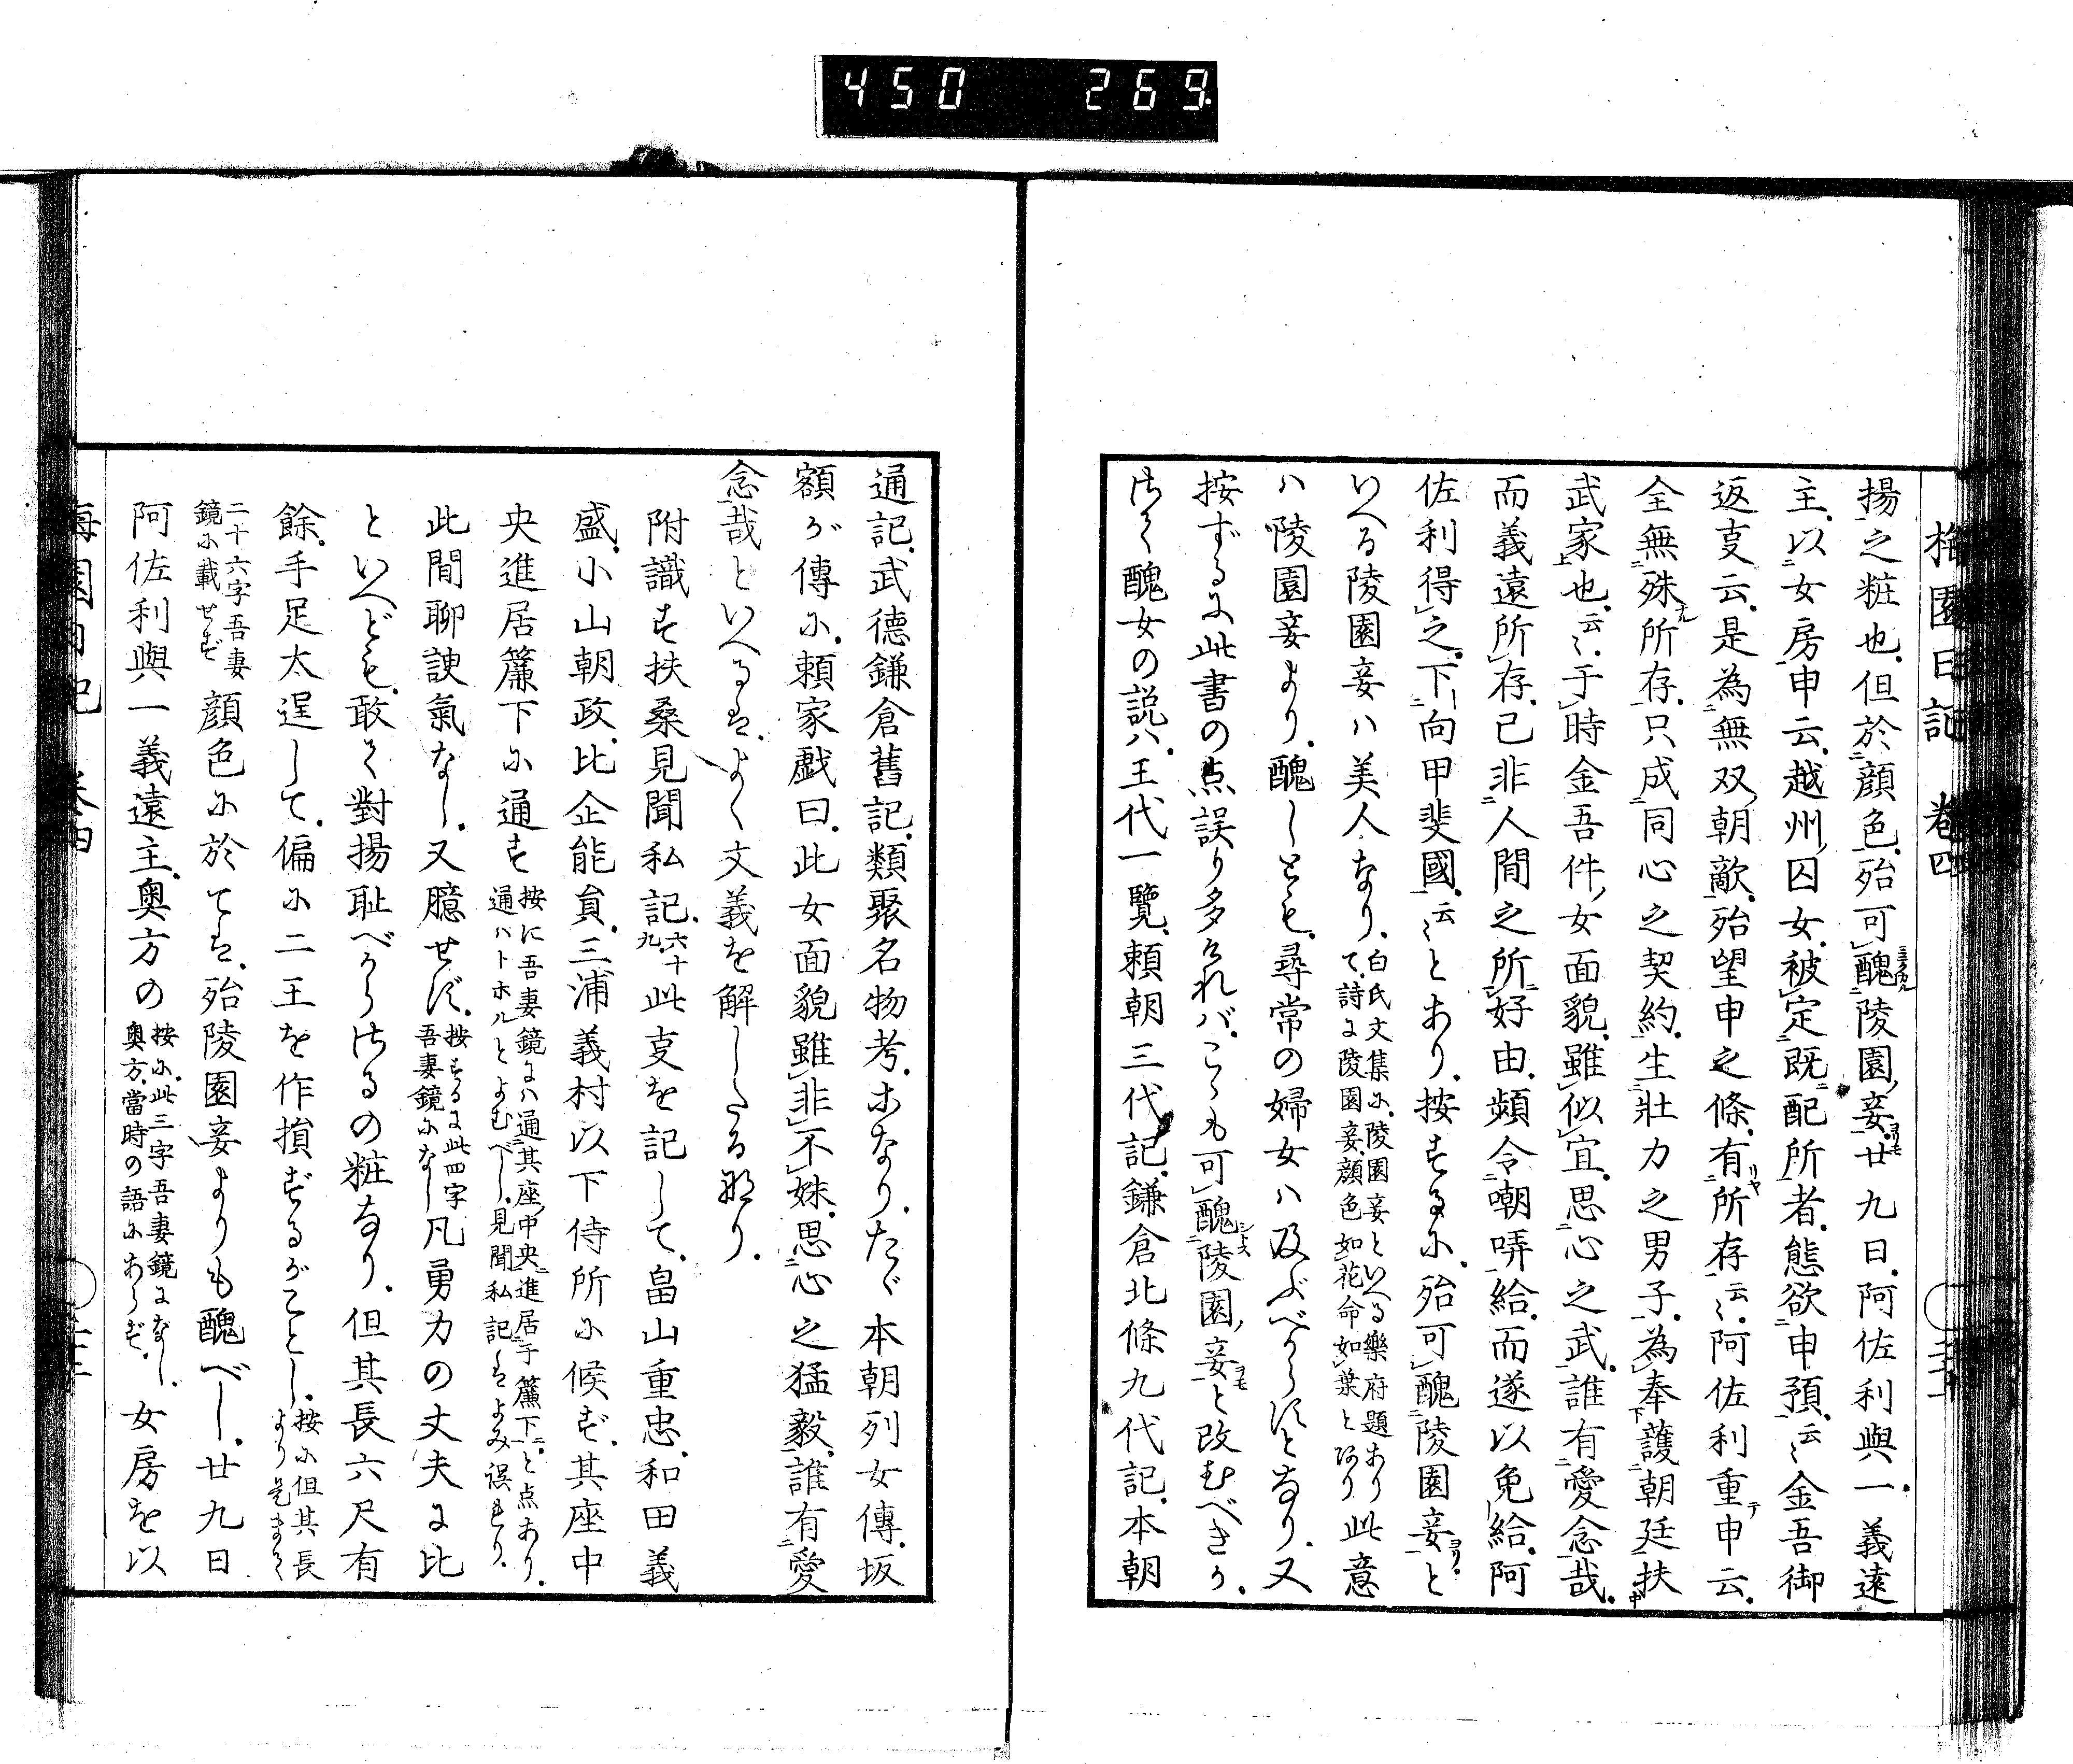 450 269
梅園日記 卷四
揚之粧也但於顔色殆可醜陵園妾廿九日阿佐利與一義遠
主以女房申云越州囚女被定既配所者態欲申預云〻金吾御
返叓云是為無双朝敵殆望申之條有所存云〻阿佐利重申云
全無殊所存只成同心之契約生壯力之男子為奉護朝廷扶
武家也云〻于時金吾件女面貌雖似宜思心之武誰有愛念哉
而義遠所存已非人間之所好由頻令嘲哢給而遂以免給阿
佐利得之下向甲斐國云〻とあり按ずるに殆可醜陵園妾と
いへる陵園妾ハ美人なり白氏文集に陵園妾といへる樂府題あり
て詩に陵園妾顔色如花命如葉とあり此意
ハ陵園妾より醜しとも尋常の婦女ハ及ぶべからずとなり又
按ずるに此書の点誤り多けれバこゝも可醜陵園妾と改むべきか
さて醜女の説ハ王代一覽頼朝三代記鎌倉北條九代記本朝
通記武德鎌倉舊記類聚名物考ホなりたゞ本朝列女傳坂
額が傳に頼家戯曰此女面貌雖非不姝思心之猛毅誰有愛
念哉といへるはよく文義を解したる那り
附識す扶桑見聞私記六十九此叓を記して畠山重忠和田義
盛小山朝政比企能員三浦義村以下侍所に候ず其座中
央進居簾下に通す按に吾妻鏡には通其座中央進居于簾下と点あり
通ハトホルとよむべし見聞私記はよみ誤れり
此間聊諛氣なし又臆せず按ずるに此四字
吾妻鏡になし凡勇力の丈夫に比
といへども敢て對揚耻べからざるの粧なり但其長六尺有
餘手足太逞して偏に二王を作損ずるがごとし按に但其長
より是まで
二十六字吾妻
鏡に載せず顔色に於ては殆陵園妾よりも醜べし廿九日
阿佐利與一義遠主奥方の按に此三字吾妻鏡になし
奥方當時の語にあらず女房を以
梅園日記 卷四